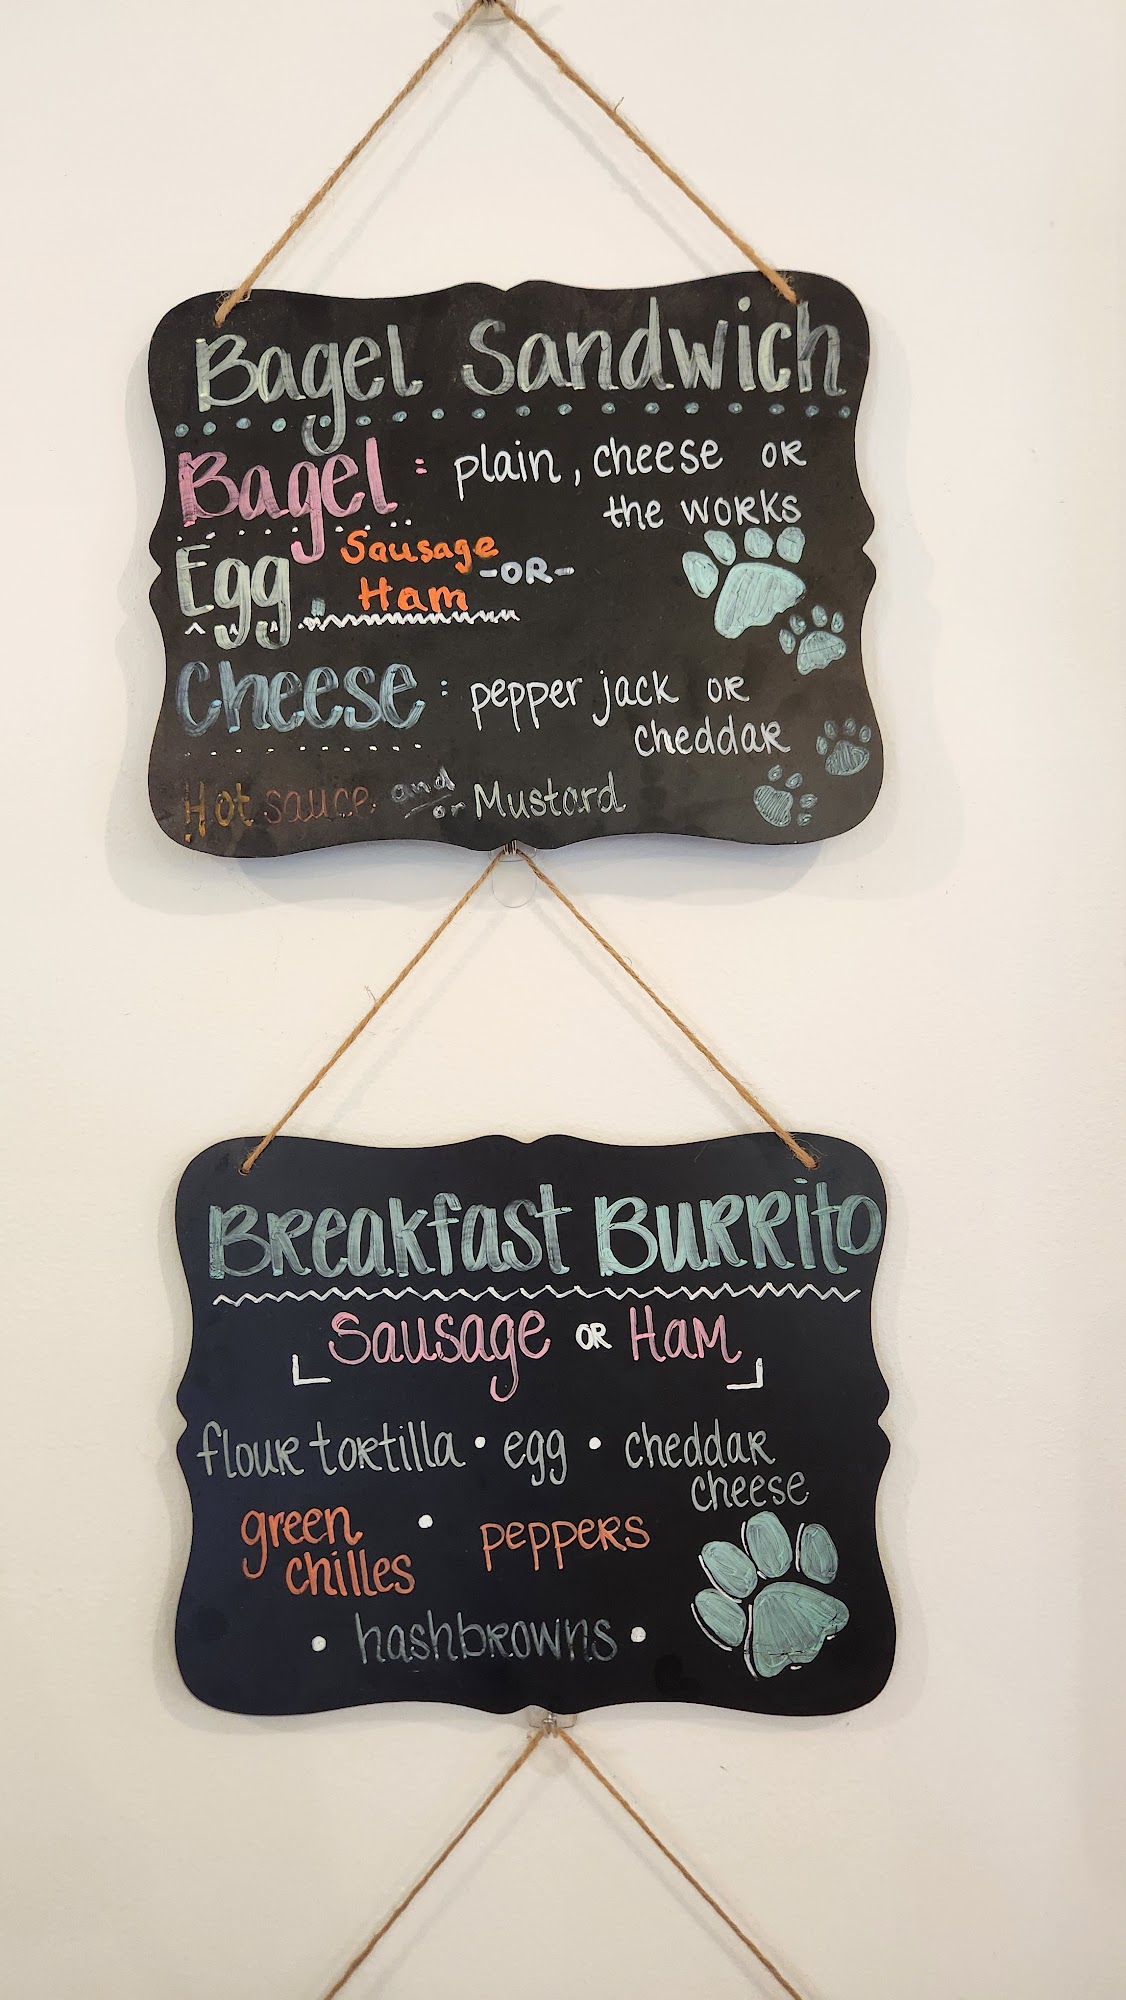 Bagel Sandwich
Bagel : plain, cheese or
the works
Egg Sausage
Ham -OR-
Cheese : pepper jack or
cheddar
Hot sauce and/or Mustard
Breakfast Burrito
Sausage or Ham
flour tortilla • egg • cheddar
cheese
green • peppers
chilles
• hashbrowns •